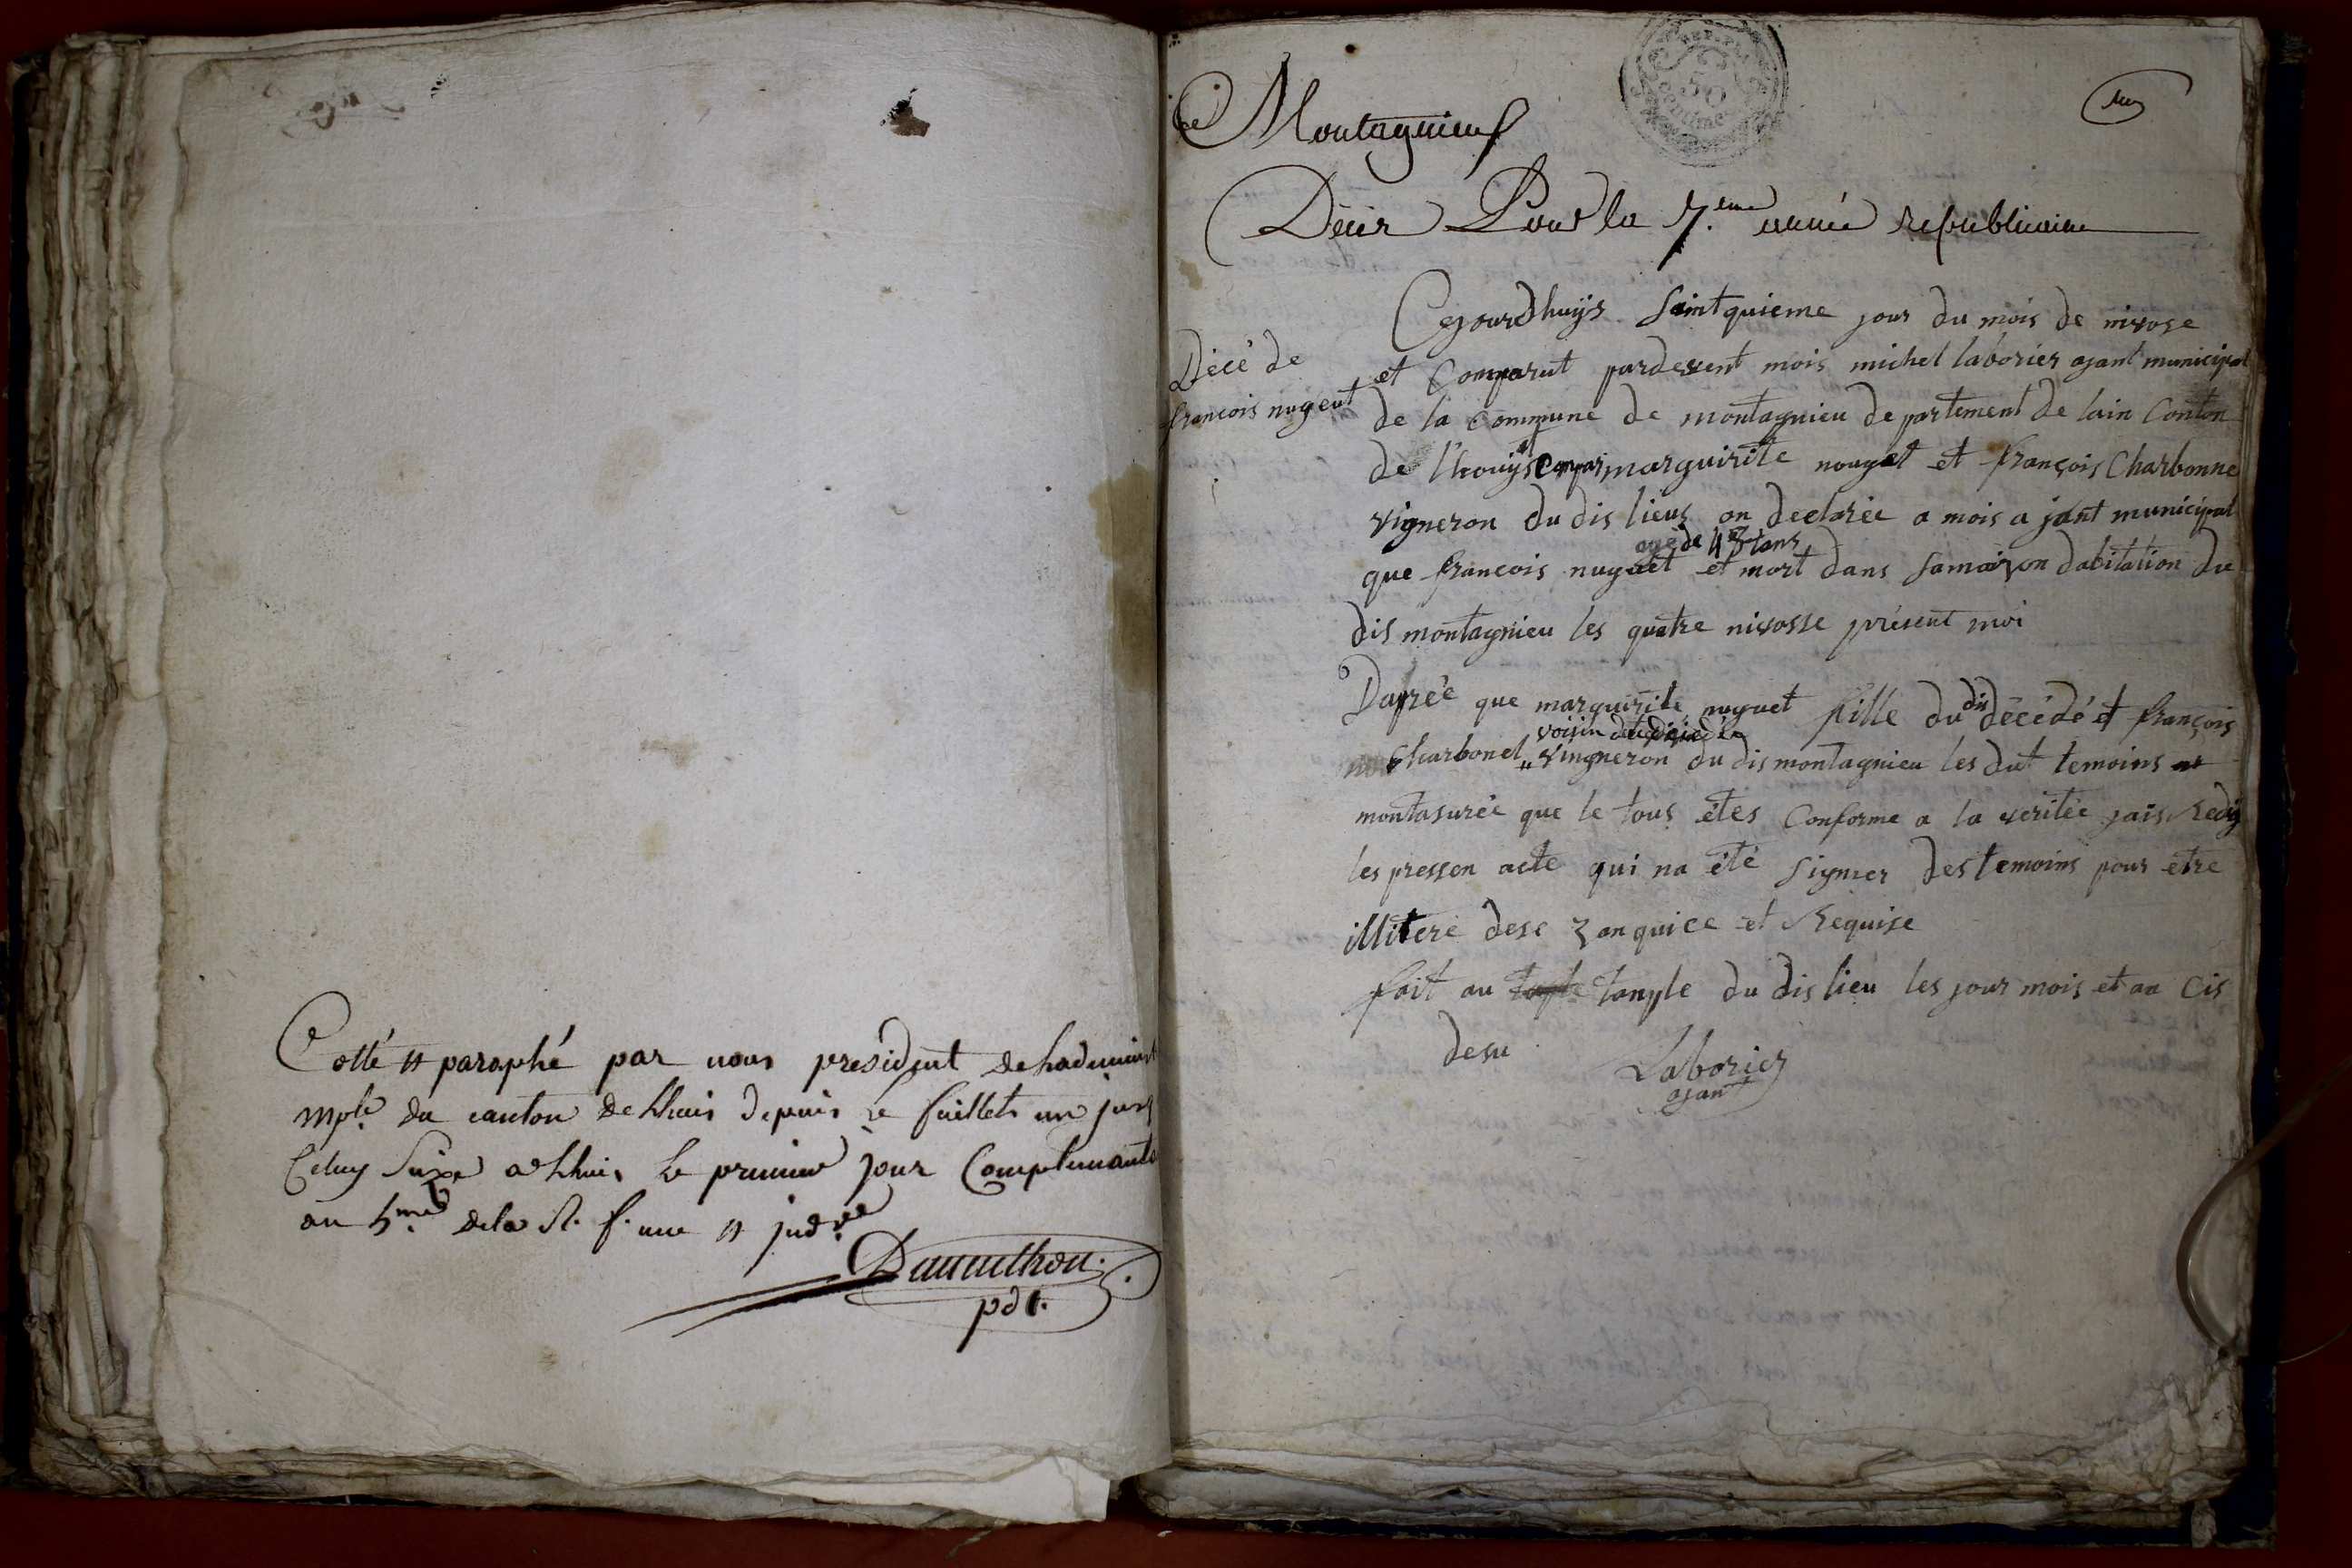 Cotté & paraphé par nous président de Ladminist
mple. du canton de Lhuis depuis le feuillet un jusq
Celuy Sixe a Lhuis le premier jour Complemant.
an 5me. de la R. f. une & indvle
pdt.
Montagnieu
50
centimes
Décès Pour la 7.eme année republicaine
Décé de
francois nuguet
Cejourdhuys Saintquieme jour du mois de nivose
et Comparut pardevent mois michel laborier ajant municipal
de la Commune de montagnieu departement de lain Conton
de l'houys Compar marguirite nouget et françois Charbonne
vigneron du dis lieus on declarée a mois ajant municipal
agé de 48 ans
que francois nuguet et mort dans samaizon dabitation du
dis montagnieu les quatre nivosse présent moi
Daprée que marguirite nuguet fille du dis décédé et françois
voisin du
Charbonel vingneron du dis montagnieu les dut temoins
montasurée que le tous étes Conforme a la veritée jais redig
les pressen acte qui na été signier des temoins pour etre
illiteré dese zanquice et Requise
fait au tanple du dis lieu les jour mois et an Cis
desu
Laborier
ajant